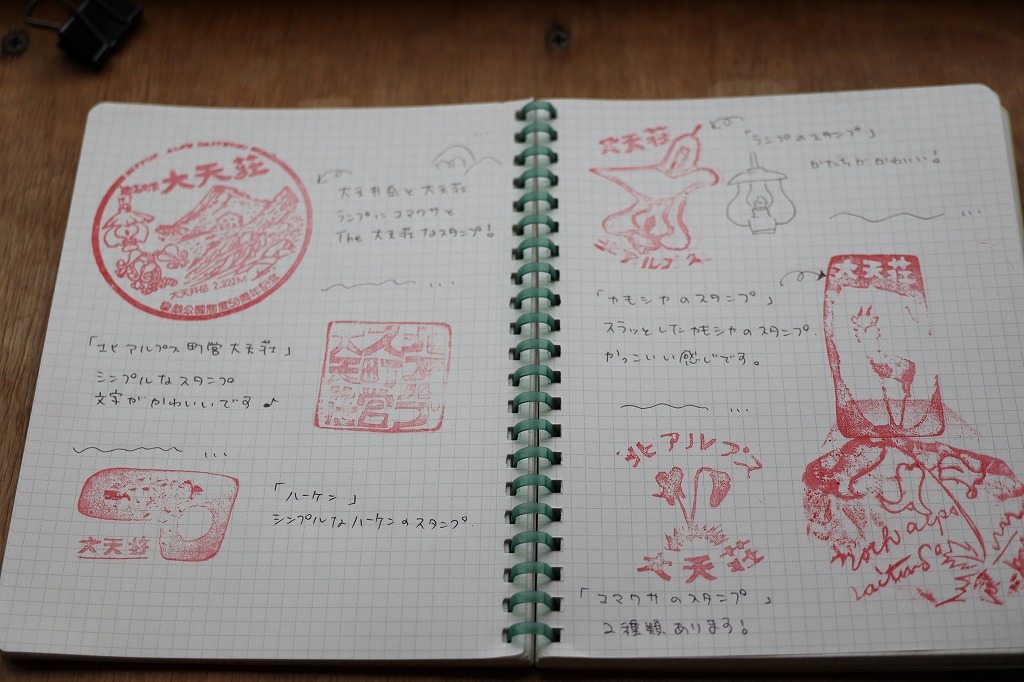 大天荘
大天井岳 2,922M
大天井岳と大天荘
ランプにコマクサと
The 大天荘なスタンプ!
...
「北アルプス町営大天荘」
シンプルなスタンプ
文字がかわいいです♪
...
大天荘
「ハーケン」
シンプルなハーケンのスタンプ.
大天荘
北アルプス
「ランプのスタンプ」
かたちがかわいい!
...
大天荘
「カモシカのスタンプ」
スラッとしたカモシカのスタンプ.
かっこいい感じです。
...
北アルプス
大天荘
north alps
「コマクサのスタンプ」
2種類あります!